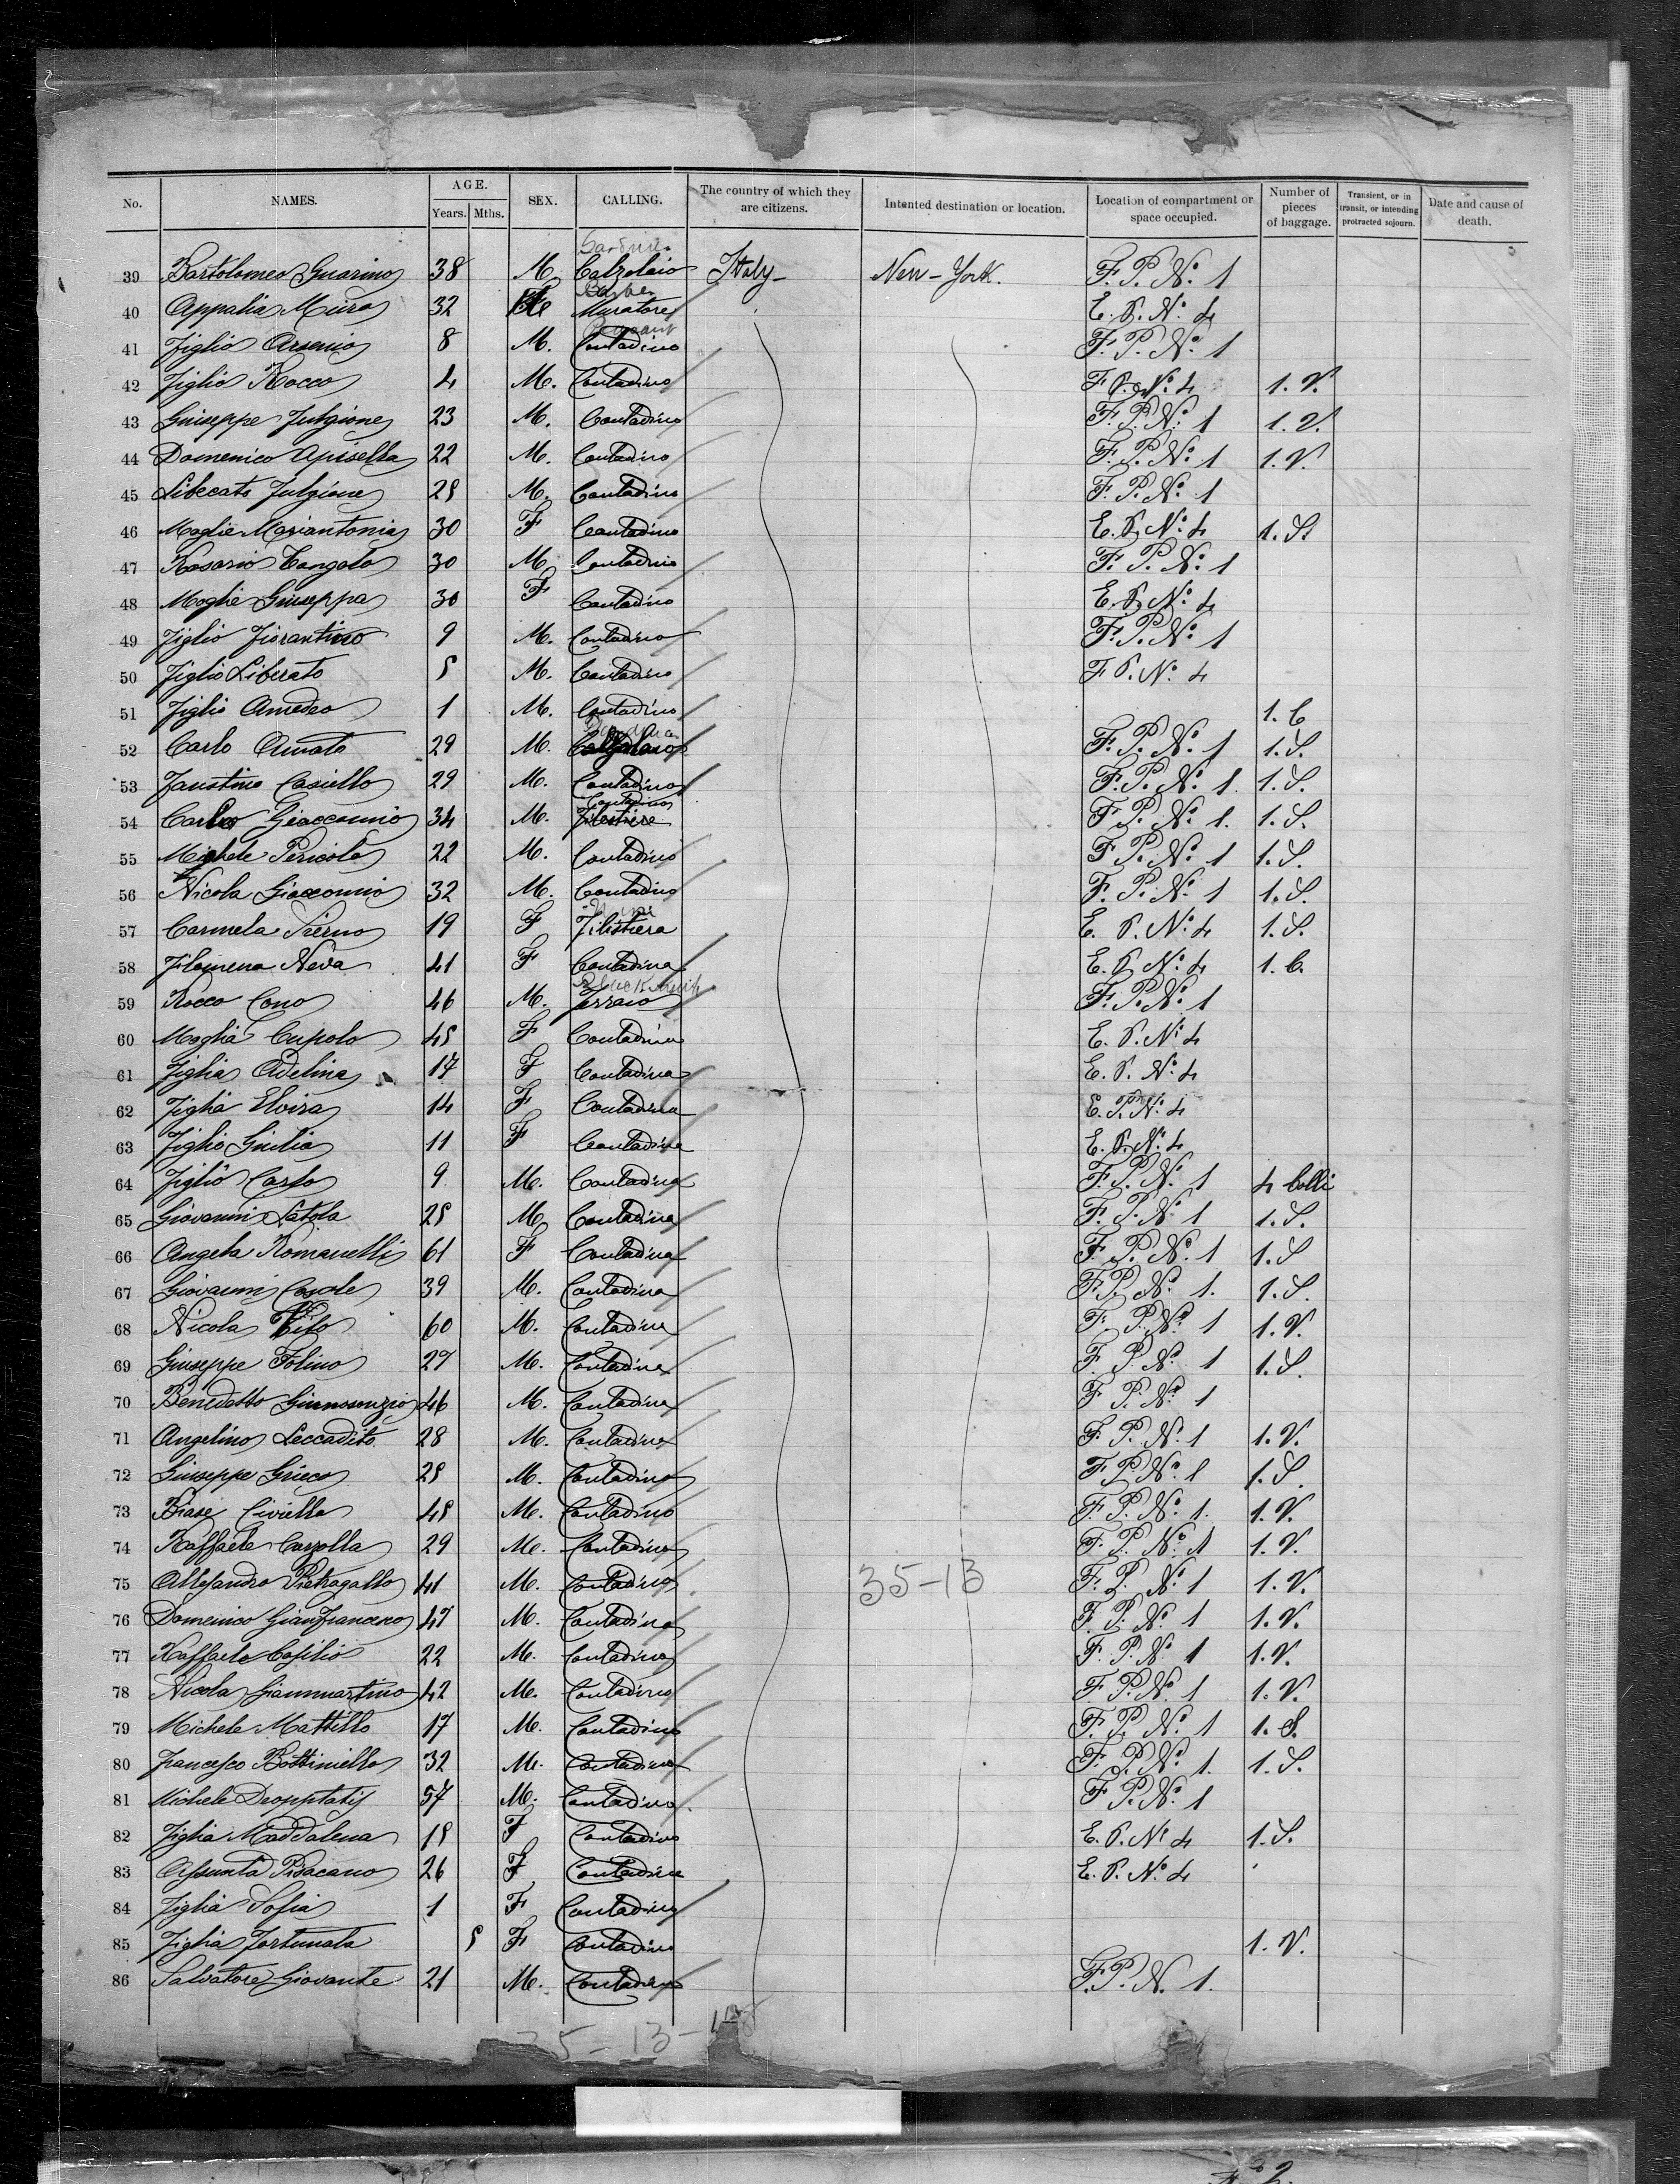 No. NAMES. AGE. Years. Mths. SEX. CALLING. The country of which they are citizens. Intented destination or location. Location of compartment or space occupied. Number of pieces of baggage. Transient, or in transit, or intending protracted sojourn. Date and cause of death.
39 Bartolomeo Guarino 38 M. Calzolaio Italy New-York. F. P. No. 1
40 32 Barber Muratore E. P. No. 4
41 Figlio Arsenio 8 M. Contadino F. P. No. 1
42 Figlio Rocco 4 M. Contadino F P. No. 4 1. V.
43 Giuseppe Fulgione 23 M. Contadino F. P. No. 1 1. V.
44 Domenico Apisella 22 M. Contadino F. P. No. 1 1. V.
45 Fulgione M. Contadino F. P. No. 1
46 Moglie Mariantonia 30 F Contadino E. P. No. 4 1. S.
47 Rosario 30 M. Contadino F. P. No. 1
48 Moglie Giuseppa 30 F Contadino E. P. No. 4
49 Figlio Fiorantino 9 M. Contadino F. P. No. 1
50 Figlio Liberato 5 M. Contadino F P. No. 4
51 Figlio Amedeo 1 M. Contadino 1. C
52 Carlo Amato 29 M. F. P. No. 1 1. S.
53 Faustino Casiello 29 M. Contadino F. P. No. 1. 1. S.
54 Giaccomio 34 M. Contadino F P. No. 1. 1. S.
55 Michele Pericolo 22 M. Contadino F P. No. 1 1. S.
56 Nicola Giaccomio 32 M. Contadino F. P. No. 1 1. S.
57 Carmela Sierno 19 F Filistiera E. P. No. 4 1. S.
58 Filomena Neva 41 F Contadina E. P. No. 4 1. C.
59 Rocco Cono 46 M. Blacksmith Ferraio F. P. No. 1
60 Moglia Cupolo 45 F Contadina E. P. No. 4
61 Figlia Adelina 17 F Contadina E. P. No. 4
62 Figlia Elvira 14 F Contadina E. P. No. 4
63 Figlia Giulia 11 F Contadina E. P. No. 4
64 Figlio Carlo 9 M. Contadina F. P. No. 1 4 Colli
65 Giovanni Latola 25 M. Contadina F. P. No. 1 1. S.
66 Angela Romanelli 61 F Contadina F. P. No. 1 1. S
67 Giovanni Casole 39 M. Contadina F. P. No. 1. 1. S.
68 Nicola 60 M. Contadina F. P. No. 1 1. V.
69 Giuseppe Folino 27 M. Contadina F. P. No. 1 1. S.
70 Benedetto 46 M. Contadina F P. No. 1
71 Angelino Leccadito 28 M. Contadina F. P. No. 1 1. V.
72 Giuseppe Grieco 25 M. Contadino F. P. No. 1 1. S.
73 Biase Civiello 45 M. Contadino F. P. No. 1. 1. V.
74 Raffaele 29 M. Contadino F. P. No. 1 1. V.
75 Allesandro Pietragallo 41 M. Contadino 35-13 F. P. No. 1 1. V.
76 Domenico Gianfrancesco 47 M. Contadino F. P. No. 1 1. V.
77 Raffaele Casilio 22 M. Contadino F. P. No. 1 1. V.
78 Nicola Gianmartino 42 M. Contadino F. P. No. 1 1. V.
79 Michele Mattillo 17 M. Contadino F. P. No. 1 1. S.
80 Francesco Bottiniello 32 M. Contadino F. P. No. 1. 1. S.
81 Michele 57 M. Contadino F P. No. 1
82 Figlia Maddalena 18 F Contadino E. P. No 4 1. S.
83 Assunta Pisacano 26 F Contadina E. P. No. 4
84 Figlia Sofia 1 F Contadino
85 Figlia Fortunata 5 F Contadino 1. V.
86 Salvatore Giovante 21 M. Contadino F. P. N. 1.